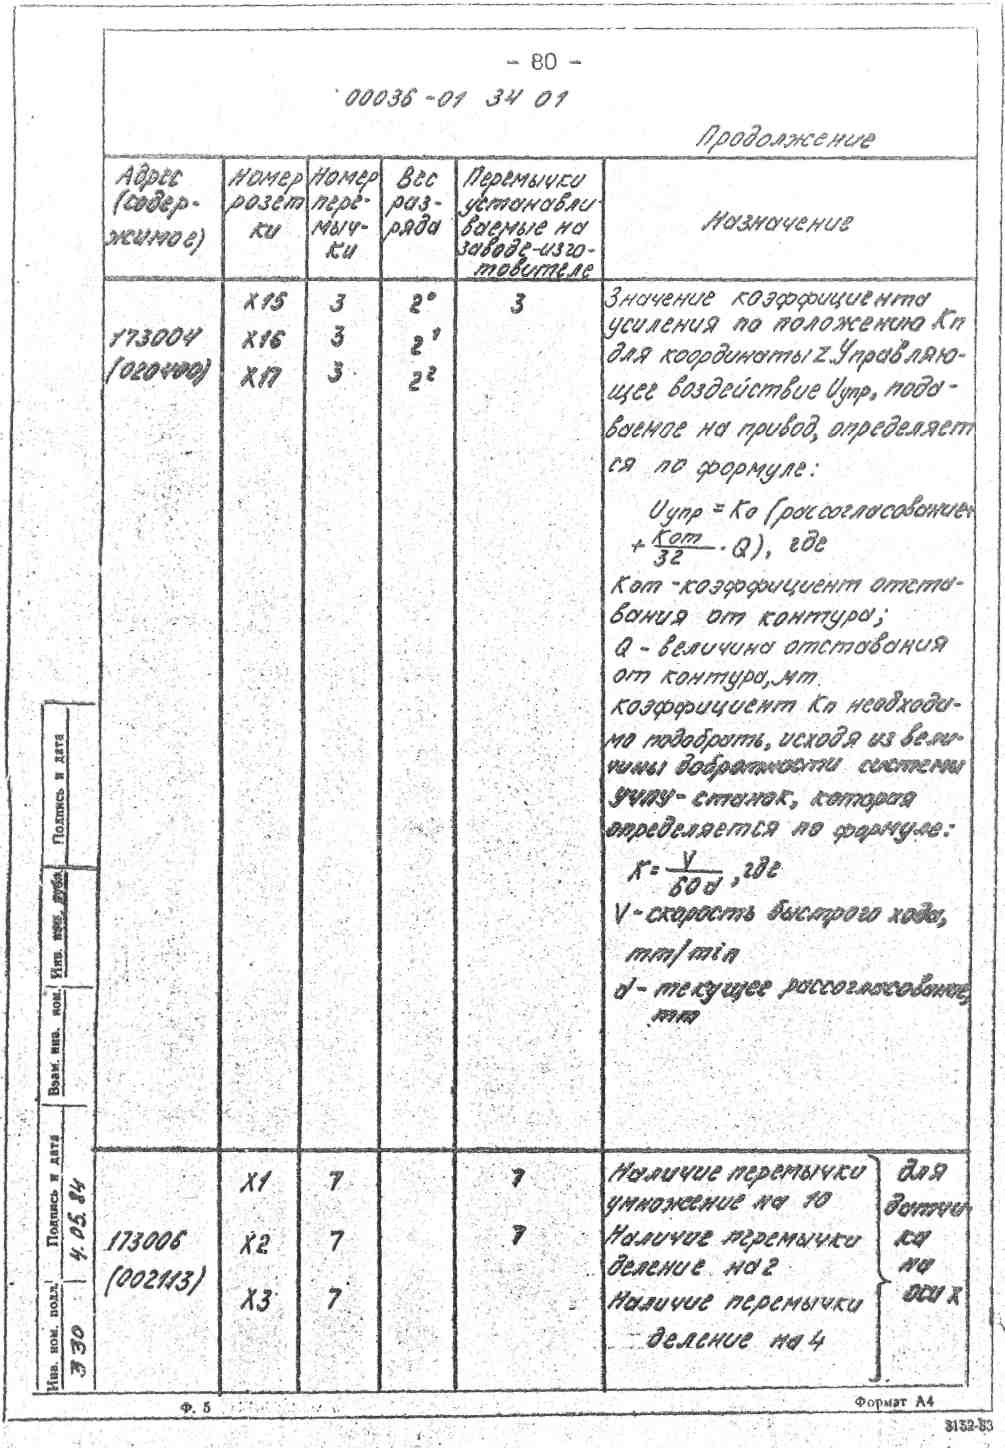 - 80 -
00036-01 34 01
Продолжение
Адрес
(содер-
жимое)
Номер
розет
ки
Номер
пере-
мыч-
ки
Вес
раз-
ряда
Перемычки
устанавли
ваемые на
заводе-изго-
товителе
Назначение
173004
(020400)
X15 3 2⁰ 3
X16 3 2¹
X17 3 2²
Значение коэффициента
усиления по положению Кп
для координаты Z. Управляю-
щее воздействие Uупр, пода-
ваемое на привод, определяет
ся по формуле:
Uупр = Ко (рассогласование+
+ Кот/32 · Q), где
Кот - коэффициент отста-
вания от контура;
Q - величина отставания
от контура, мт.
коэффициент Кп необходи-
мо подобрать, исходя из вели-
чины добротности системы
УЧПУ - станок, которая
определяется по формуле:
K = V/60d, где
V - скорость быстрого хода,
mm/min
d - текущее рассогласование,
mm
173006
(002113)
X1 7 7
X2 7 7
X3 7
Наличие перемычки
умножение на 10
Наличие перемычки
деление на 2
Наличие перемычки
деление на 4
для
датчи
ка
на
оси X
Подпись и дата
Инв. ном. дубл.
Взам. инв. ном.
Подпись и дата
4.05.84
Инв. ном. подл.
330
Ф. 5
Формат А4
3132-83